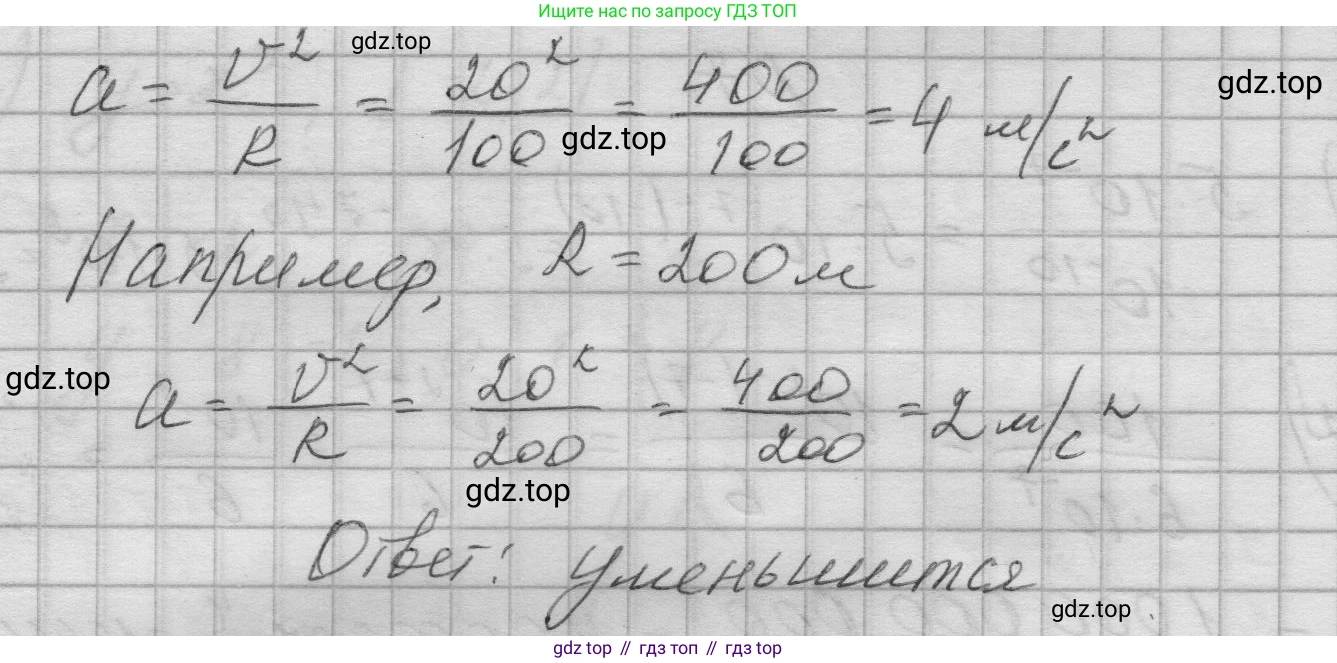 Ищите нас по запросу ГДЗ ТОП
gdz.top
a = v²/R = 20²/100 = 400/100 = 4 м/с²
gdz.top
gdz.top
Например, R = 200 м
gdz.top
a = v²/R = 20²/200 = 400/200 = 2 м/с²
gdz.top
Ответ: уменьшится
gdz.top
gdz top // гдз топ // gdz top